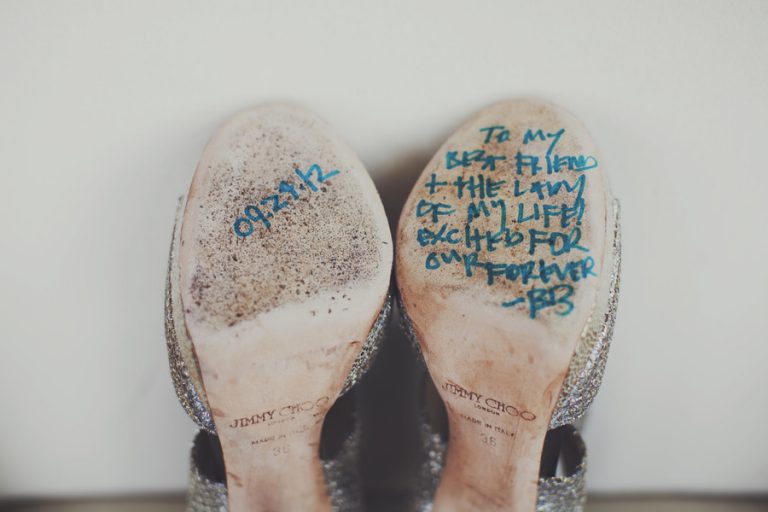 09.29.12
TO MY
BEST FRIEND
+ THE LADY
OF MY LIFE!
EXCITED FOR
OUR FOREVER
-BB
JIMMY CHOO
LONDON
MADE IN ITALY
38
JIMMY CHOO
LONDON
MADE IN ITALY
38